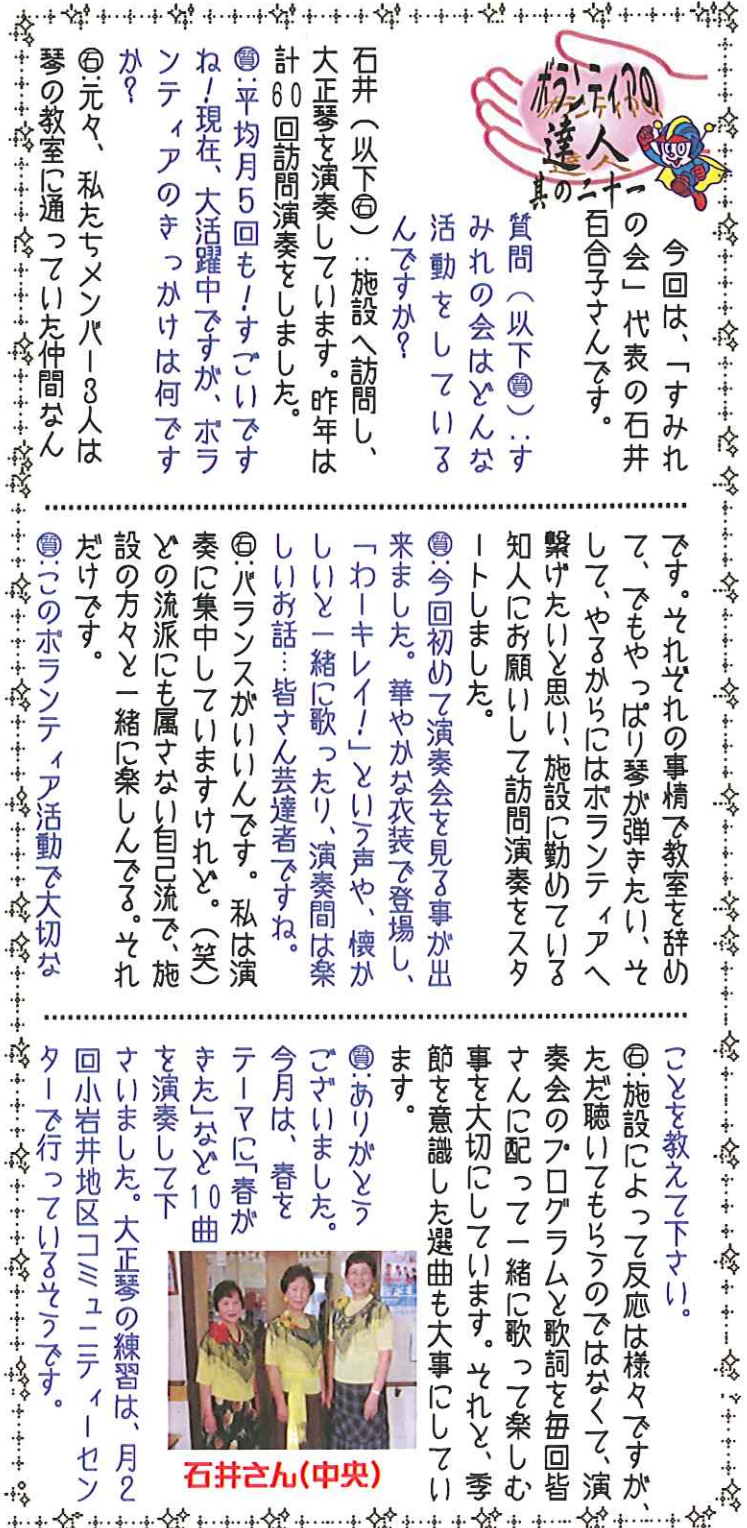 ボランティアの
達人
其の二十一
今回は、「すみれ
の会」代表の石井
百合子さんです。
質問(以下㊮):す
みれの会はどんな
活動をしている
んですか?
石井(以下㊔):施設へ訪問し、
大正琴を演奏しています。昨年は
計60回訪問演奏をしました。
㊮:平均月5回も!すごいです
ね!現在、大活躍中ですが、ボラ
ンティアのきっかけは何です
か?
㊔:元々、私たちメンバー3人は
琴の教室に通っていた仲間なん
です。それぞれの事情で教室を辞め
て、でもやっぱり琴が弾きたい、そ
して、やるからにはボランティアへ
繋げたいと思い、施設に勤めている
知人にお願いして訪問演奏をスタ
ートしました。
㊮:今回初めて演奏会を見る事が出
来ました。華やかな衣装で登場し、
「わーキレイ!」という声や、懐か
しいと一緒に歌ったり、演奏間は楽
しいお話…皆さん芸達者ですね。
㊔:バランスがいいんです。私は演
奏に集中していますけれど。(笑)
どの流派にも属さない自己流で、施
設の方々と一緒に楽しんでる。それ
だけです。
㊮:このボランティア活動で大切な
ことを教えて下さい。
㊔:施設によって反応は様々ですが、
ただ聴いてもらうのではなくて、演
奏会のプログラムと歌詞を毎回皆
さんに配って一緒に歌って楽しむ
事を大切にしています。それと、季
節を意識した選曲も大事にしてい
ます。
㊮:ありがとう
ございました。
今月は、春を
テーマに「春が
きた」など10曲
を演奏して下
さいました。大正琴の練習は、月2
回小岩井地区コミュニティーセン
ターで行っているそうです。
石井さん(中央)